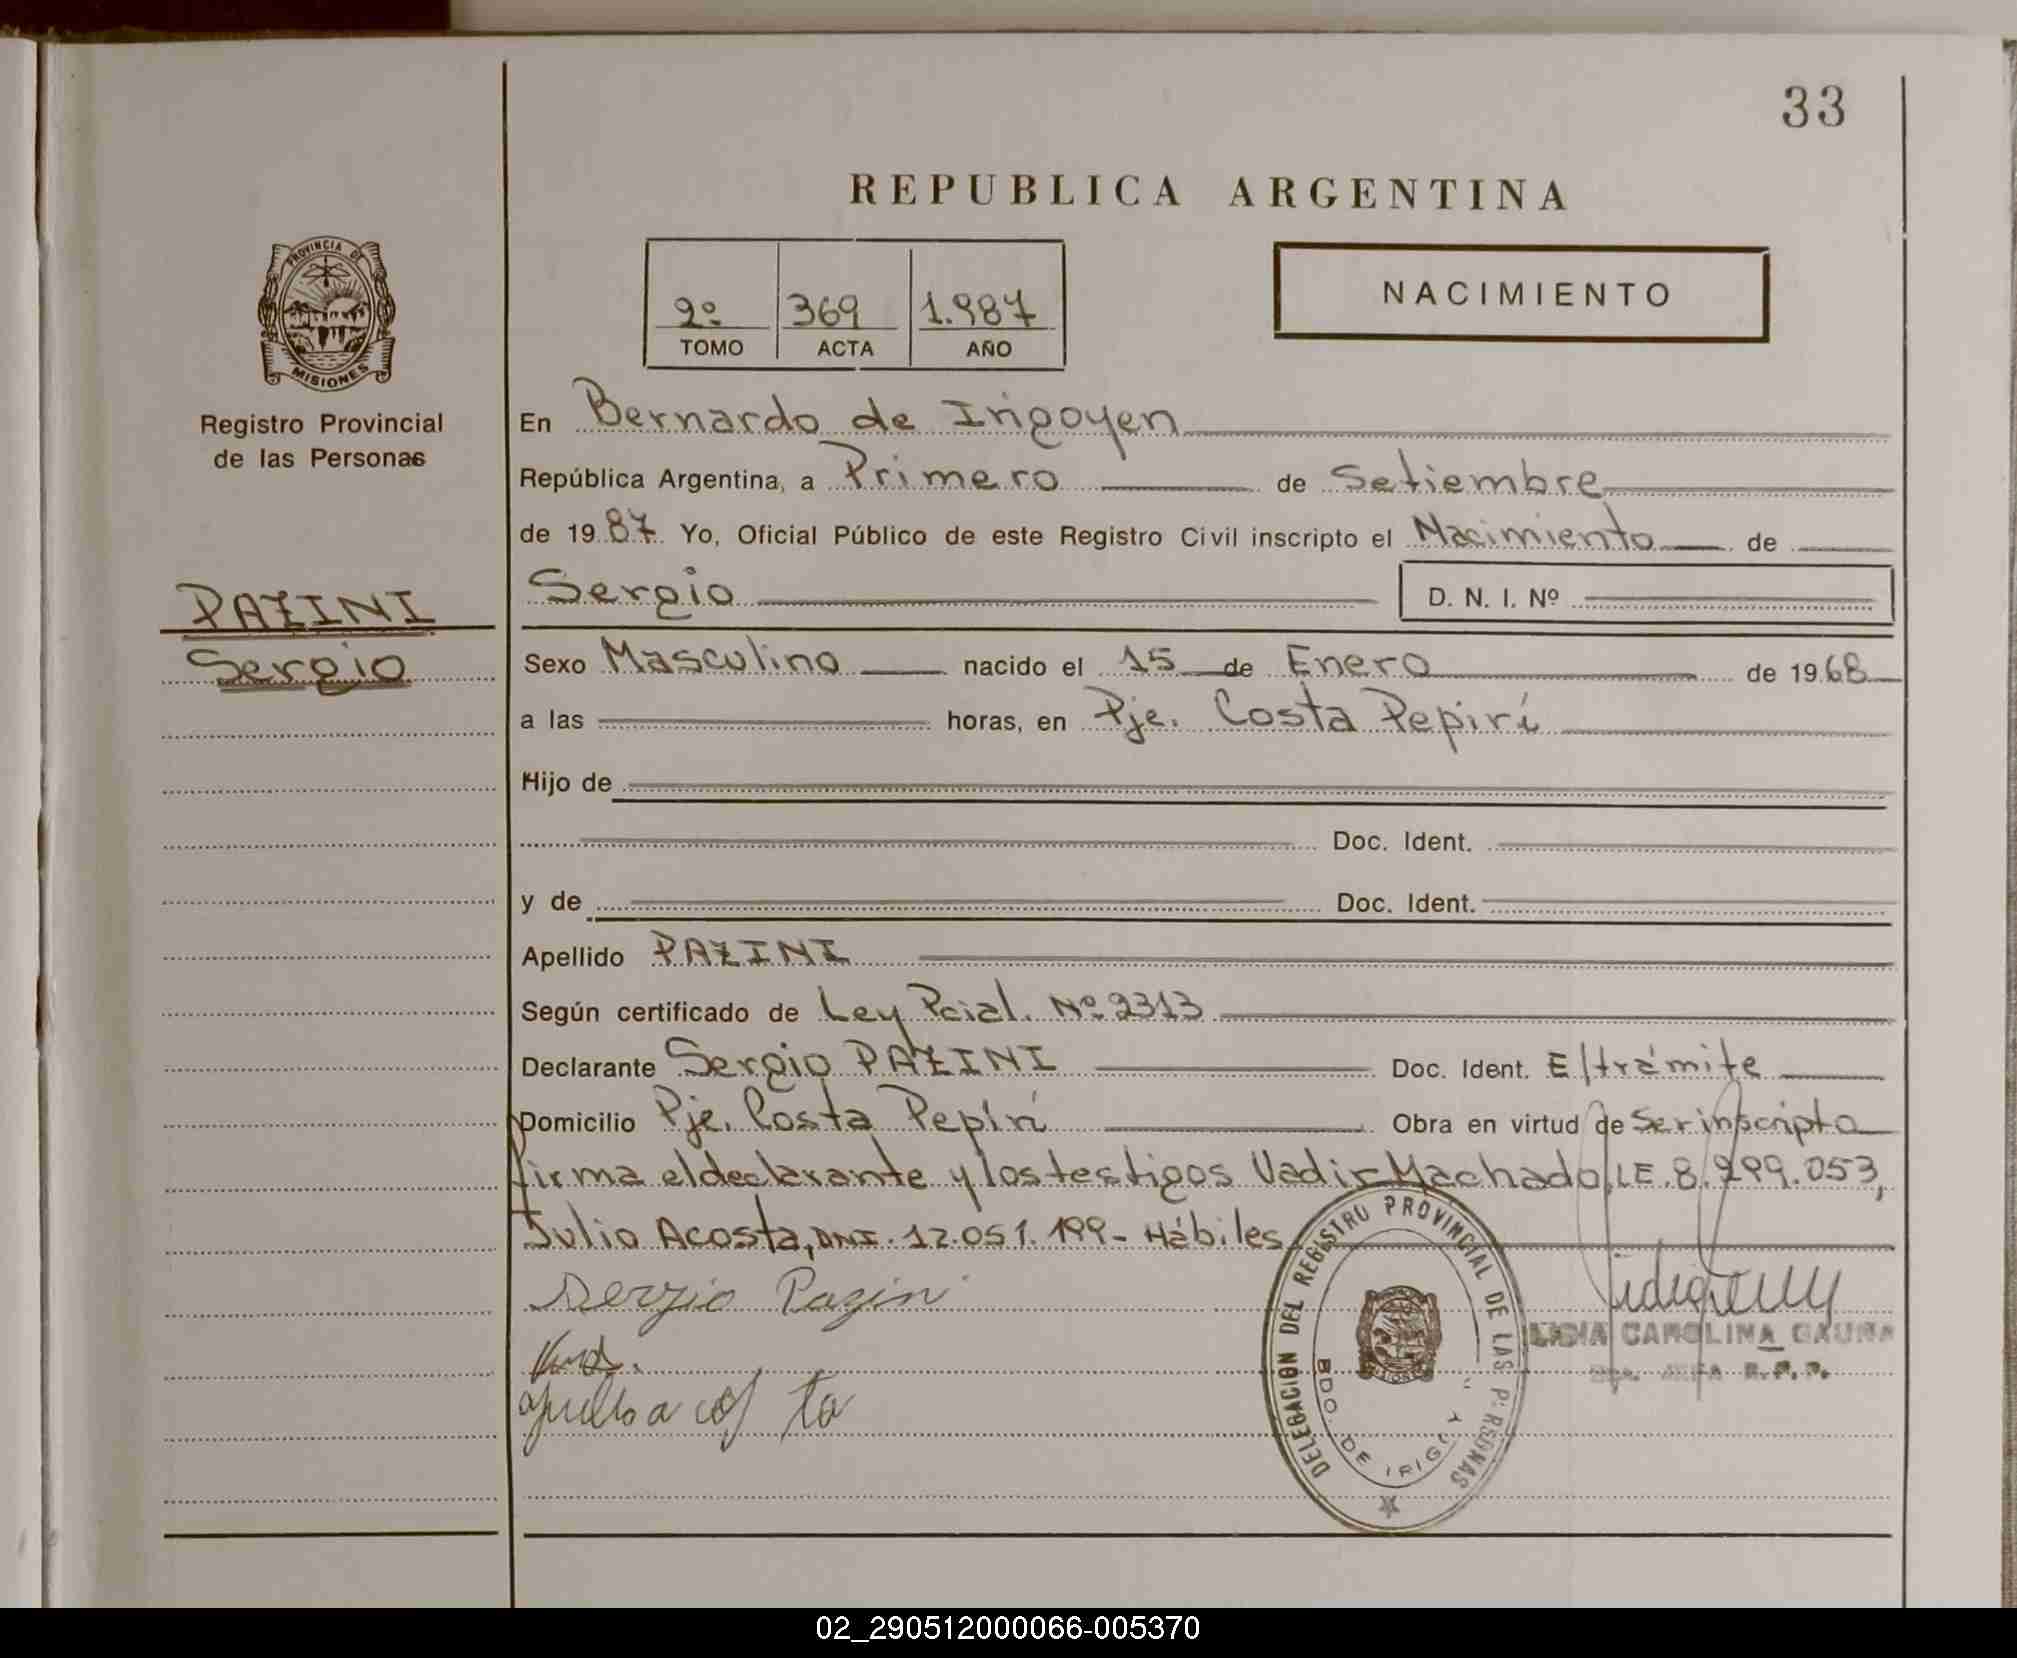 33
REPUBLICA ARGENTINA
PROVINCIA DE
MISIONES
Registro Provincial
de las Personas
2º 369 1.987
TOMO ACTA AÑO
NACIMIENTO
En Bernardo de Irigoyen
República Argentina, a Primero de Setiembre
de 1987 Yo, Oficial Público de este Registro Civil inscripto el Nacimiento de
PAZINI
Sergio
Sergio D. N. I. Nº
Sexo Masculino nacido el 15 de Enero de 1968
a las horas, en Pje. Costa Pepirí
Hijo de
Doc. Ident.
y de Doc. Ident.
Apellido PAZINI
Según certificado de Ley Pcial. Nº 2313
Declarante Sergio PAZINI Doc. Ident. E/trámite
Domicilio Pje. Costa Pepirí Obra en virtud de Ser inscripto
firma el declarante y los testigos Vadir Machado, LE. 8.299.053,
Julio Acosta, DNI. 12.051.199- Hábiles
Sergio Pazini
DELEGACION DEL REGISTRO PROVINCIAL DE LAS PERSONAS
MISIONES
BDO. DE IRIGOY
LIDIA CAROLINA GAUNA
R.P.P.
02_290512000066-005370